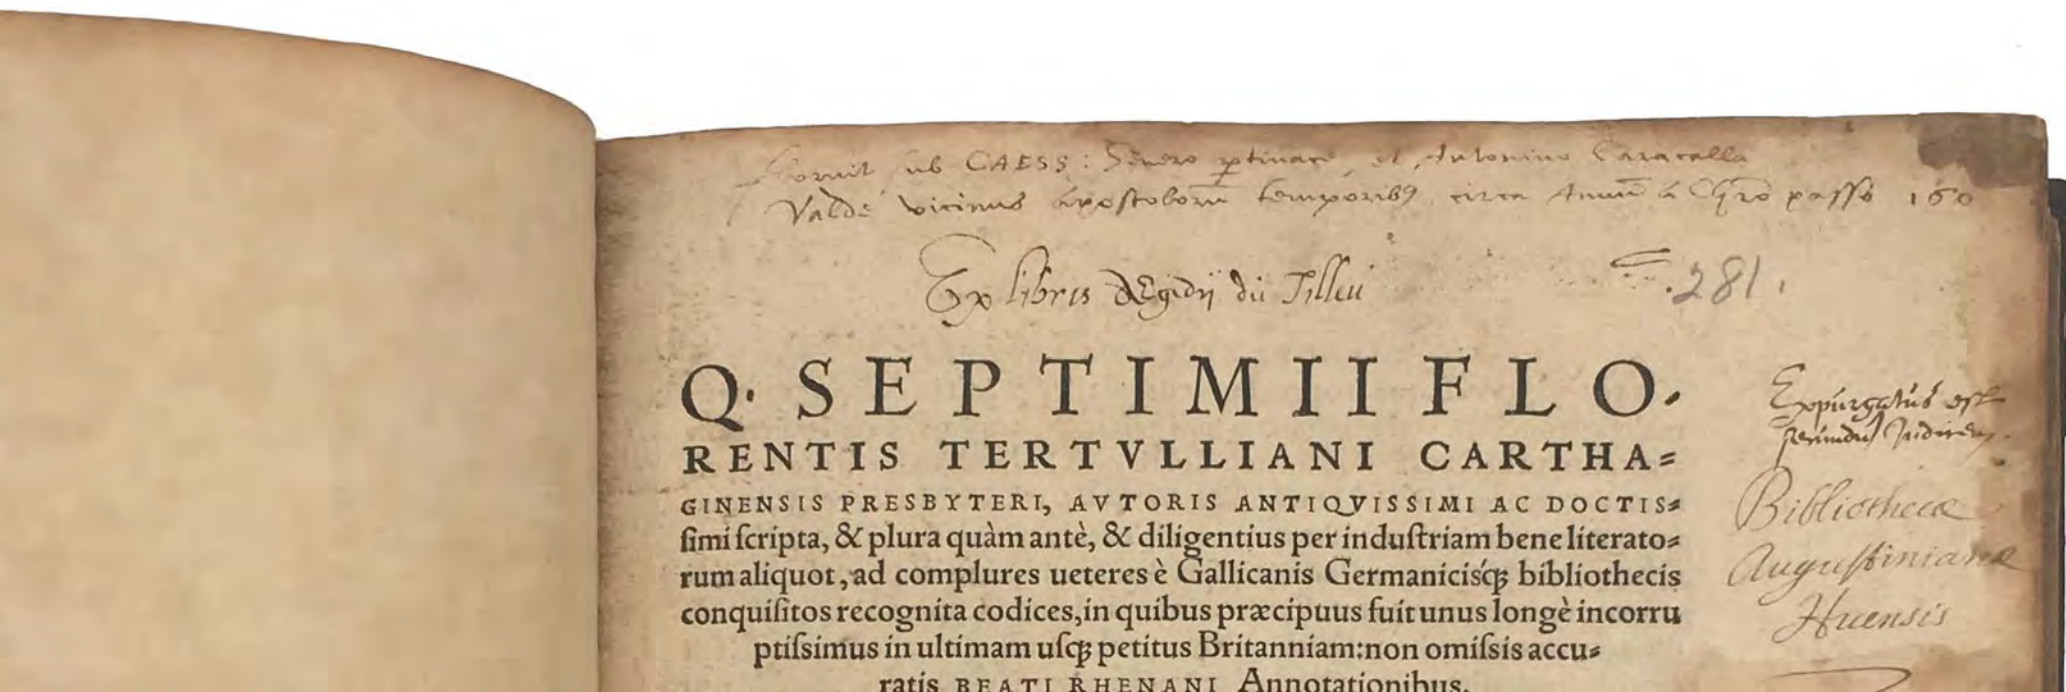 Floruit sub CAESS: Severo ꝑtinace, et Antonino Caracalla
Valde vicinus Apostolorū temporibꝰ, circa Annū à Chr̃o passo 160
Ex libris Ægidij du Tilleu
.281.
Q. SEPTIMII FLO.
RENTIS TERTVLLIANI CARTHA⸗
GINENSIS PRESBYTERI, AVTORIS ANTIQVISSIMI AC DOCTIS⸗
ſimi ſcripta, & plura quàm antè, & diligentius per induſtriam bene literato⸗
rum aliquot, ad complures ueteres è Gallicanis Germanicisꝗ́ꝫ bibliothecis
conquiſitos recognita codices, in quibus præcipuus fuit unus longè incorru
ptiſsimus in ultimam uſꝗꝫ petitus Britanniam: non omiſsis accu⸗
ratis BEATI RHENANI Annotationibus.
Expurgatus est
secundũ Indicem.
Bibliothecæ
Augustinianæ
Huensis